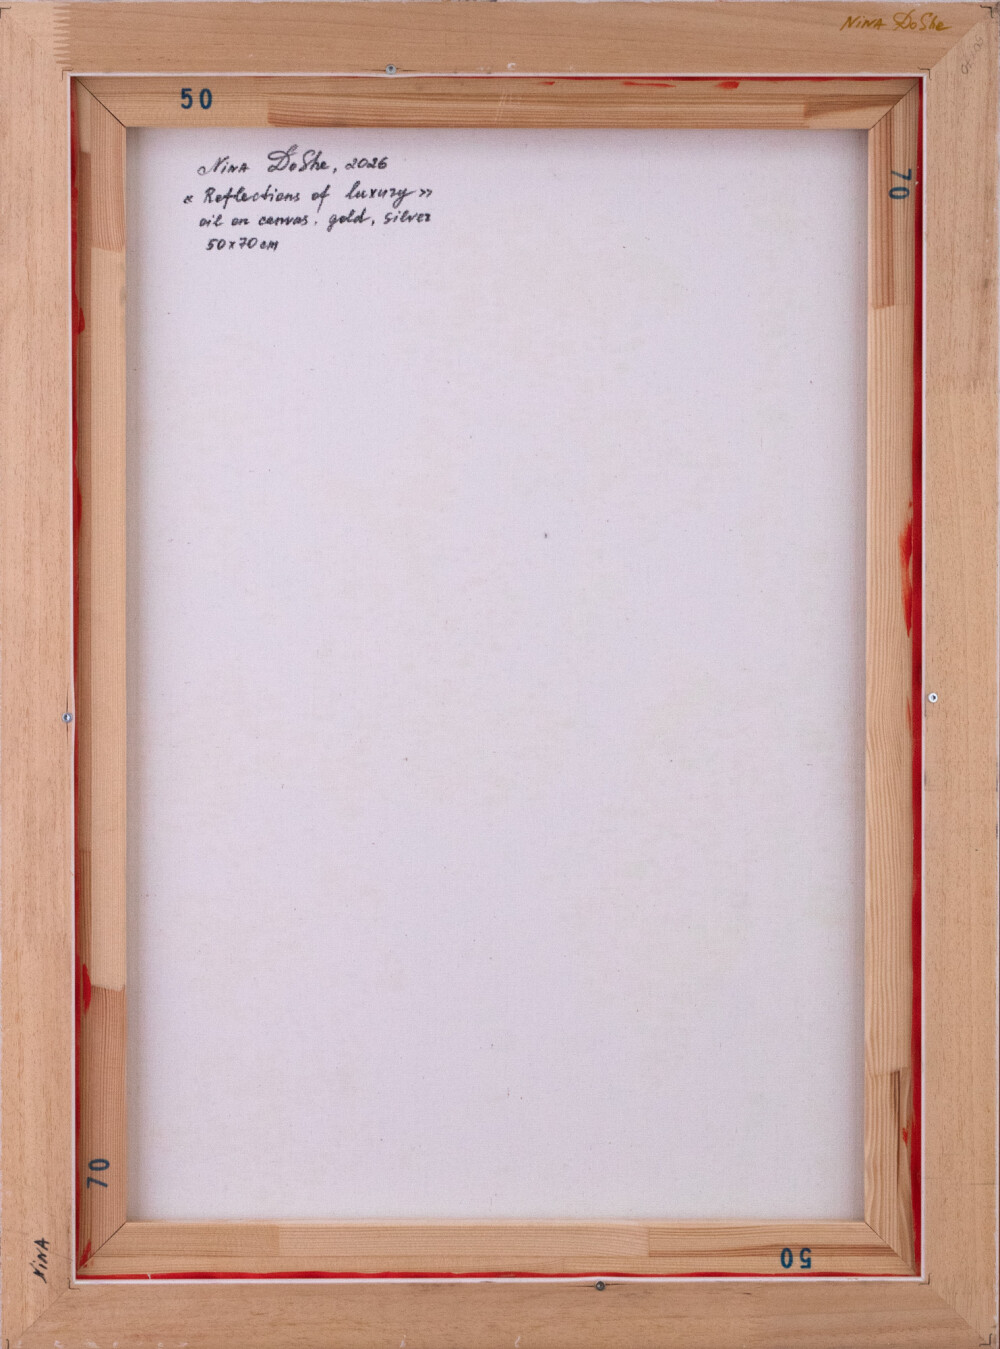 NiNA DoShe
50
NiNA DoShe, 2026
« Reflections of luxury »
oil on canvas, gold, silver
50x70 cm
70
70
NiNA
50